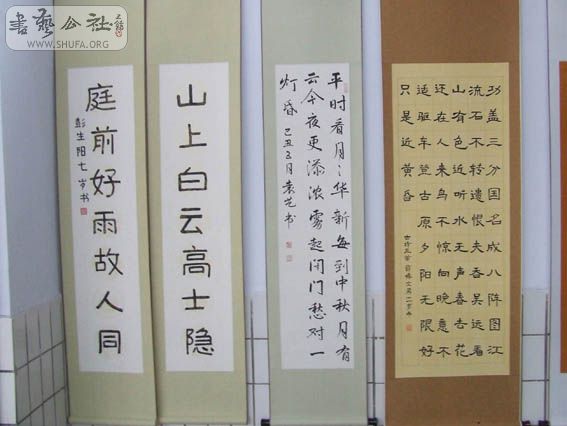 書藝公社
WWW.SHUFA.ORG
功盖三分国名成八阵图江
流石不转遗恨失吞吴远看
山有色近听水无声春去花
还在人来鸟不惊向晚意不
适驱车登古原夕阳无限好
只是近黄昏
古诗三首
平时看月々华新每到中秋月有
云今夜更添浓雾起开门愁对一
灯昏 己丑三月袁艺书
山上白云高士隐
庭前好雨故人同
彭生阳七岁书